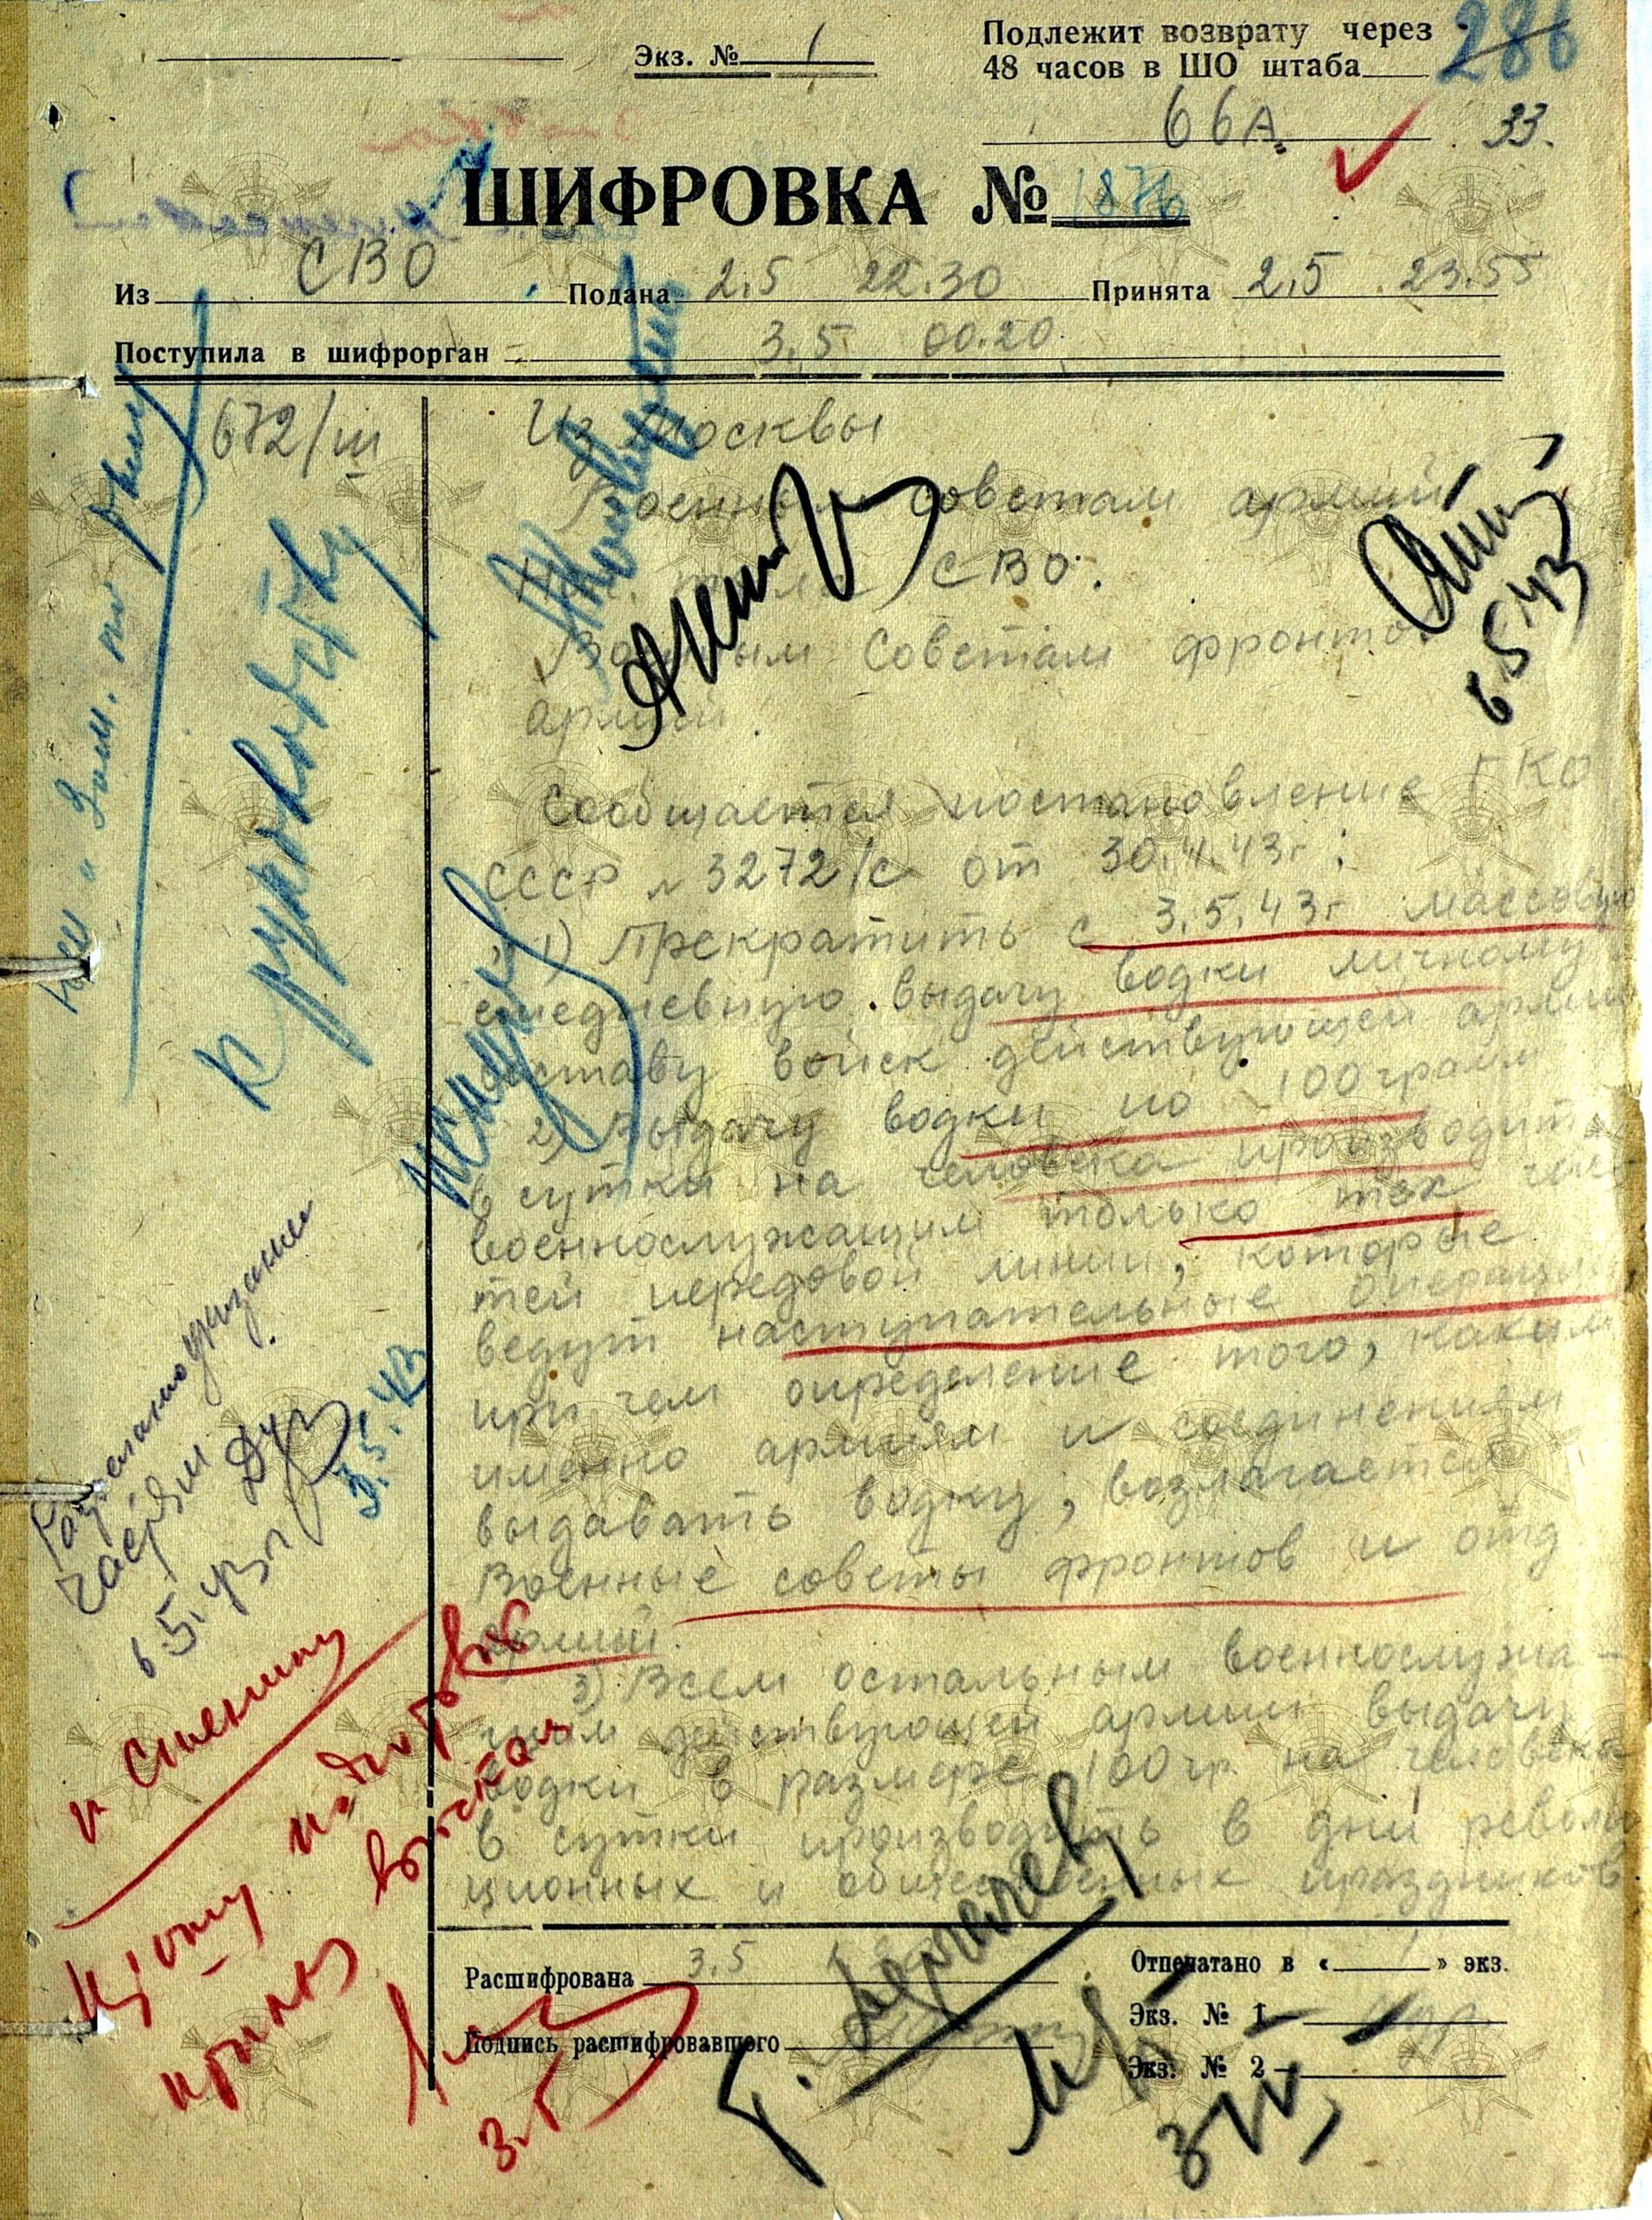 Экз. № 1
Подлежит возврату через
48 часов в ШО штаба
286
66А.
33.
ШИФРОВКА № 1876
Из СВО Подана 2.5 22.30 Принята 2.5 23.55
Поступила в шифрорган 3.5 00.20
672/ш
Из Москвы
Военным советам армий
СВО.
Военным Советам фронтов
армий
Сообщается постановление ГКО
СССР № 3272/с от 30.4.43г:
1) Прекратить с 3.5.43г массовую
ежедневную выдачу водки личному
составу войск действующей армии
2) Выдачу водки по 100 грамм
в сутки на человека производить
военнослужащим только тех час-
тей передовой линии, которые
ведут наступательные операции
при чем определение того, каким
именно армиям и соединениям
выдавать водку, возлагается
Военные советы фронтов и отд
армий.
3) Всем остальным военнослужа-
щим действующей армии выдачу
водки в размере 100 гр. на человека
в сутки производить в дни револю
ционных и общественных праздников
К руководству
3.5.43
частям
6.5.43г
6.5.43
3.5
Расшифрована 3.5
Подпись расшифровавшего
Отпечатано в « 1 » экз.
Экз. № 1
Экз. № 2